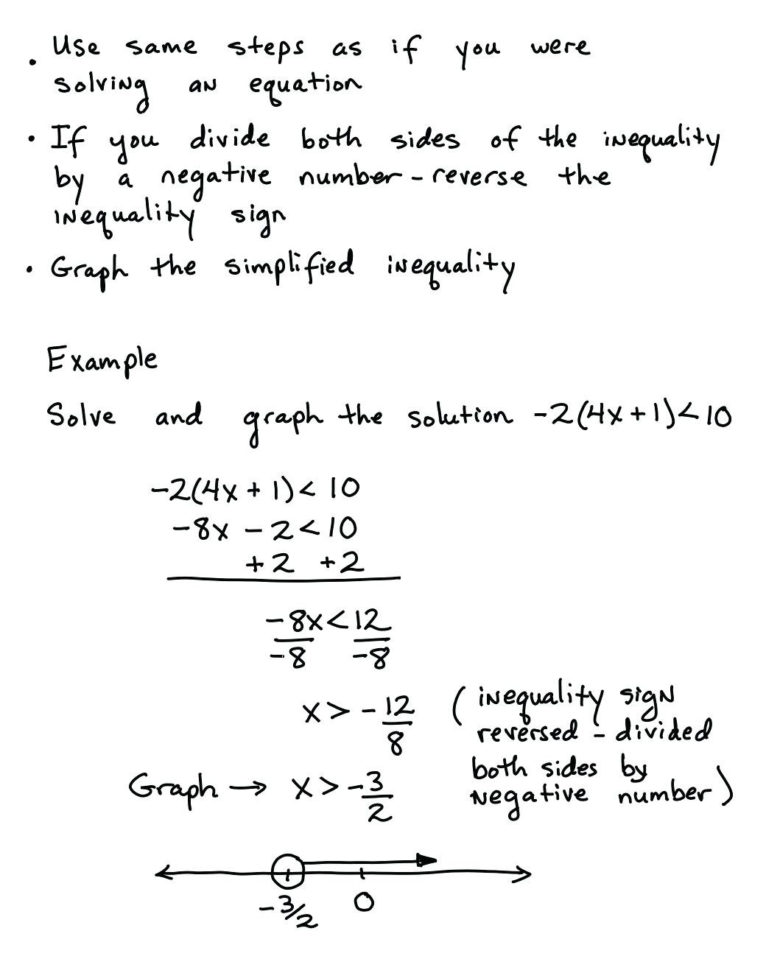 • Use same steps as if you were
solving an equation
• If you divide both sides of the inequality
by a negative number - reverse the
inequality sign
• Graph the simplified inequality
Example
Solve and graph the solution -2(4x+1)<10
-2(4x + 1) < 10
-8x - 2 < 10
+2 +2
-8x < 12
-8 -8
x > -12/8 (inequality sign
reversed - divided
both sides by
negative number)
Graph → x > -3/2
-3/2 0